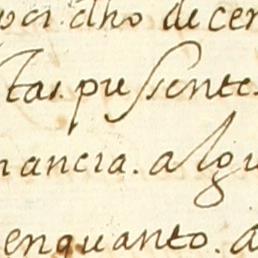 por dho de cer
tas. pressente.
nancia. algu
enquanto. a